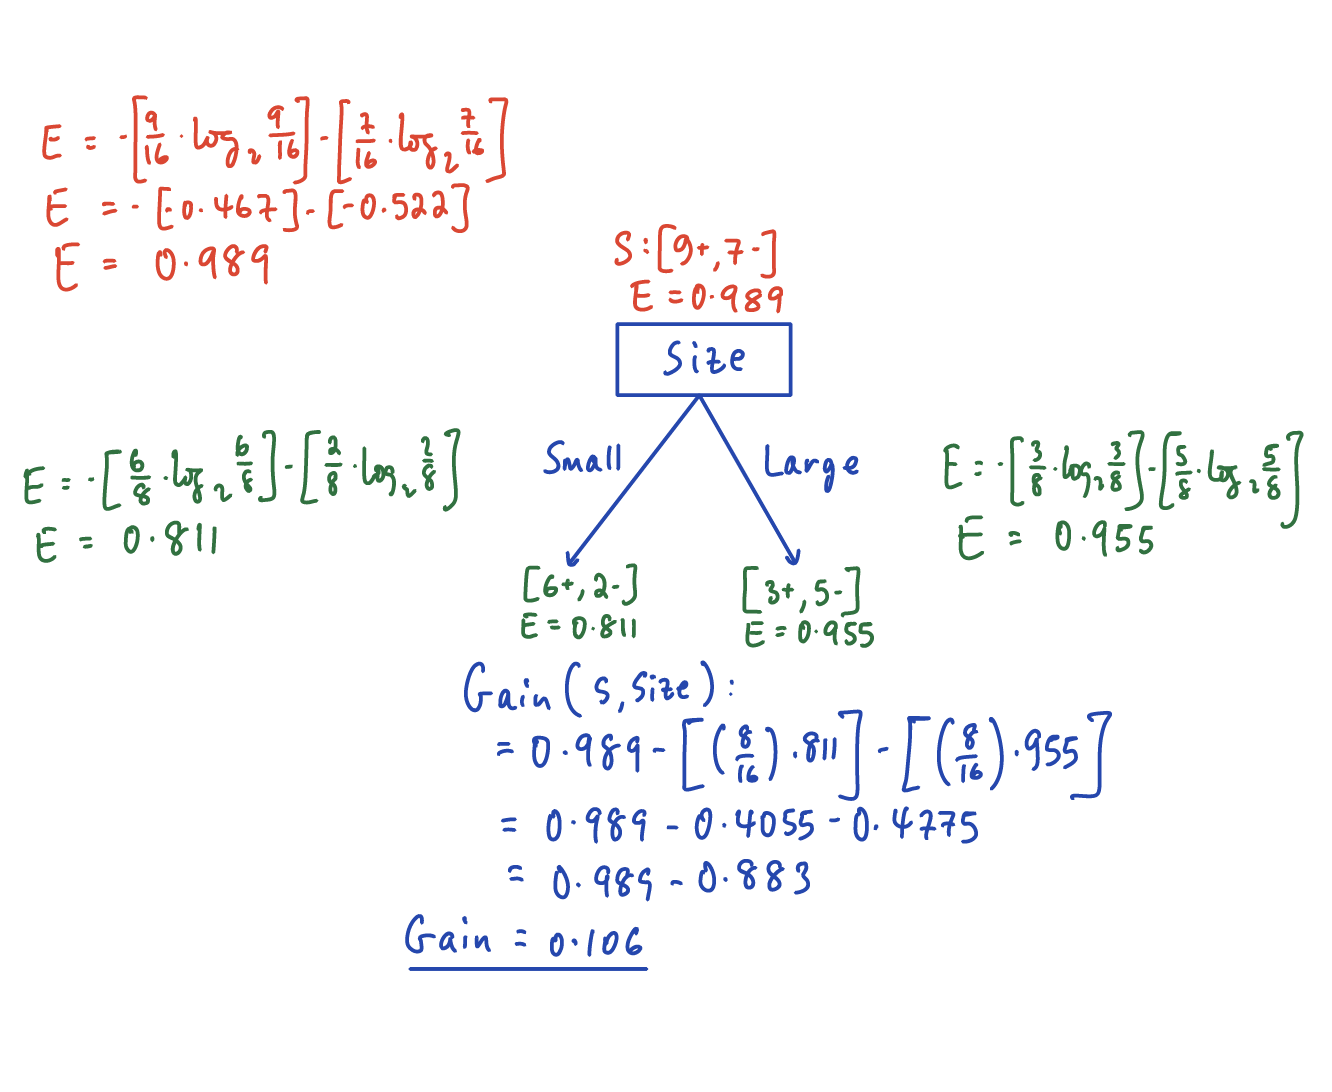 E = -[9/16 · log₂ 9/16] - [7/16 · log₂ 7/16]
E = -[-0.467] - [-0.522]
E = 0.989
S:[9+,7-]
E = 0.989
Size
Small
Large
E = -[6/8 · log₂ 6/8] - [2/8 · log₂ 2/8]
E = 0.811
E = -[3/8 · log₂ 3/8] - [5/8 · log₂ 5/8]
E = 0.955
[6+, 2-]
E = 0.811
[3+, 5-]
E = 0.955
Gain (S, Size) :
= 0.989 - [(8/16) .811] - [(8/16) .955]
= 0.989 - 0.4055 - 0.4775
= 0.989 - 0.883
Gain = 0.106